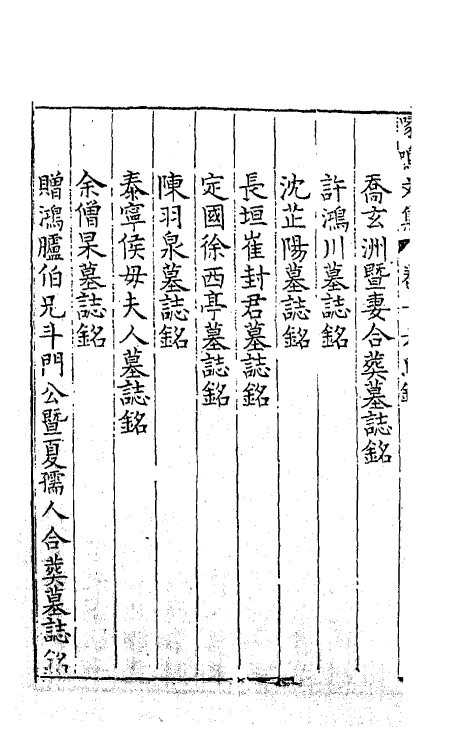 喬玄洲暨妻合葬墓誌銘
許鴻川墓誌銘
沈芷陽墓誌銘
長垣崔封君墓誌銘
定國徐西亭墓誌銘
陳羽泉墓誌銘
泰寧侯毋夫人墓誌銘
余僧杲墓誌銘
贈鴻臚伯兄斗門公暨夏孺人合葬墓誌銘